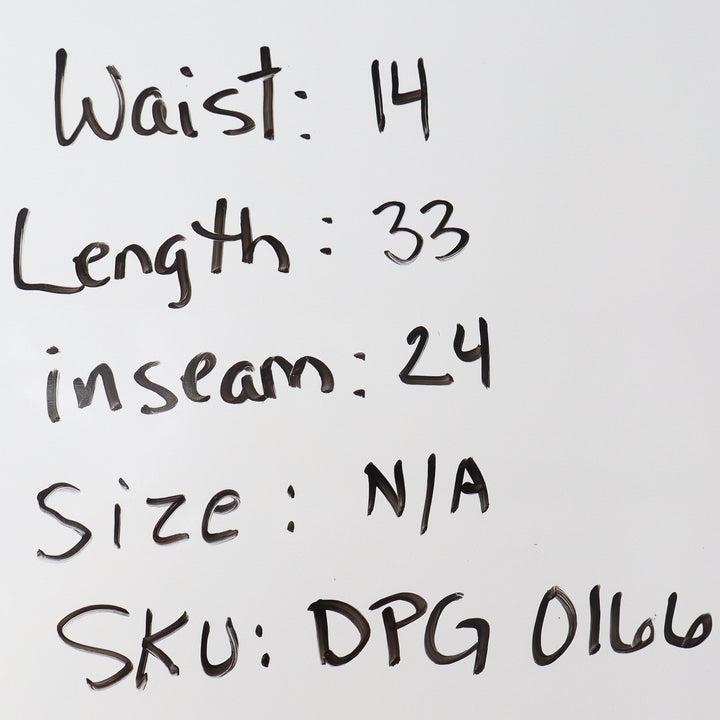 Waist: 14
Length: 33
inseam: 24
Size: N/A
SKU: DPG 0166